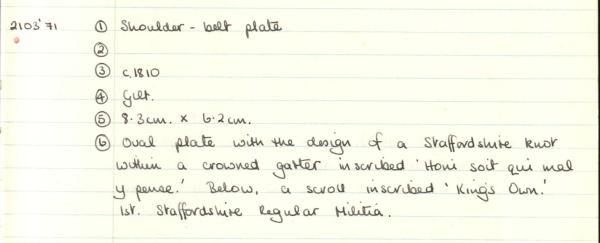 2103'71 ① Shoulder - belt plate
②
③ c.1810
④ Gilt.
⑤ 8.3cm. x 6.2cm.
⑥ Oval plate with the design of a Staffordshire knot
within a crowned garter inscribed 'Honi soit qui mal
y pense.' Below, a scroll inscribed 'King's Own.'
1st. Staffordshire Regular Militia.